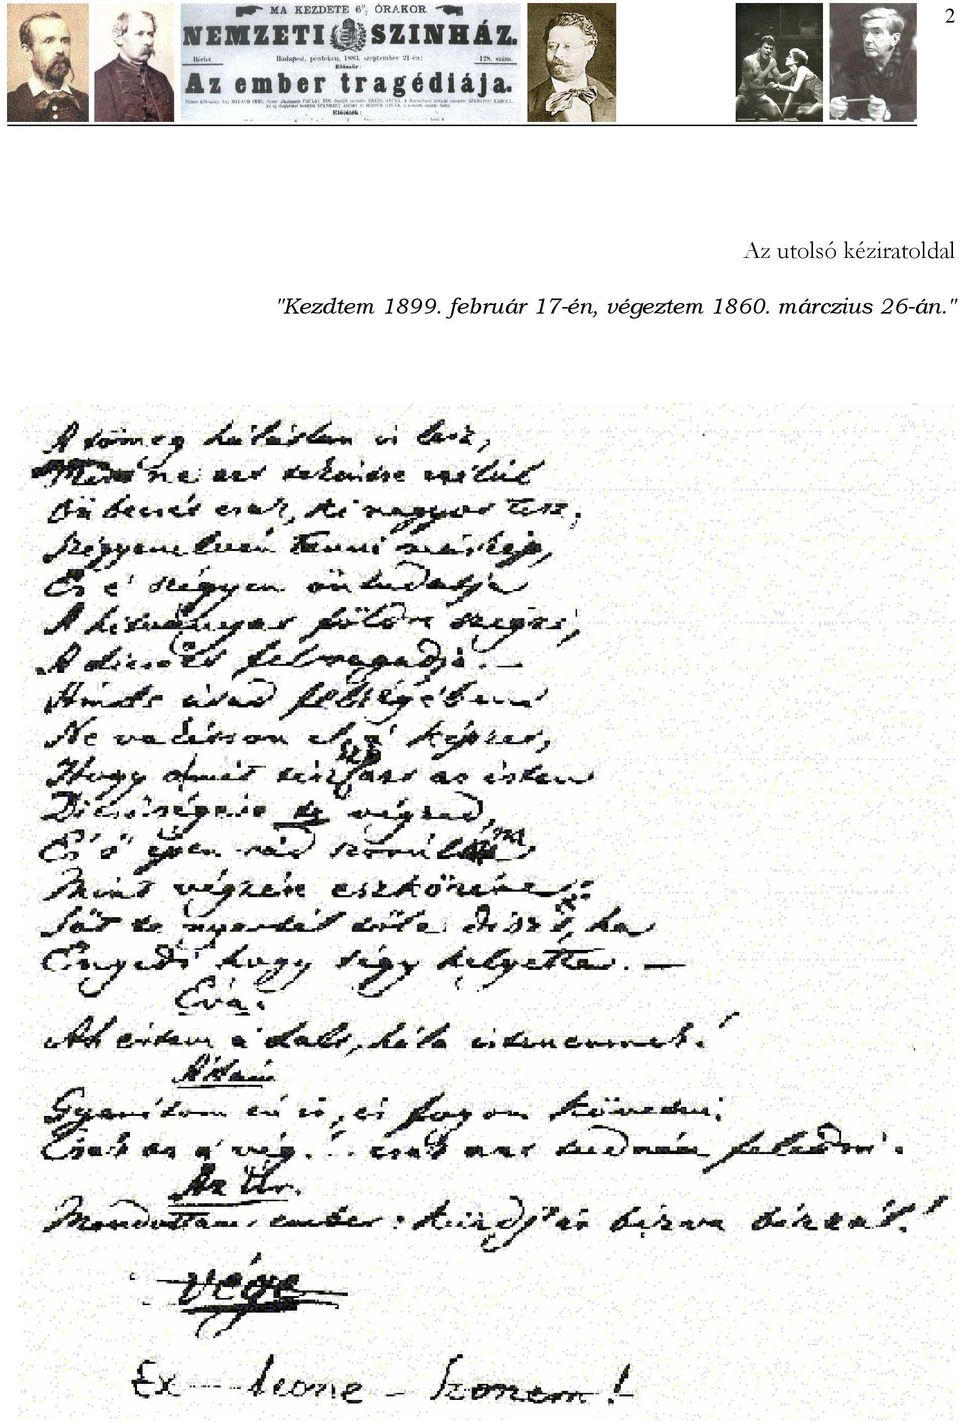 2
MA KEZDETE 6½ ÓRAKOR
NEMZETI SZINHÁZ.
Bérlet. Budapest, pénteken, 1883. szeptember 21-én: 128. szám.
Először:
Az ember tragédiája.
Előjáték:
Az utolsó kéziratoldal
"Kezdtem 1899. február 17-én, végeztem 1860. márczius 26-án."
A tömeg hálátlan is lesz,
Mert ne azt tekintse célúl
Önbecsét csak, ki nagyot tesz,
Szégyenelvén tenni másképp,
És e' szégyen öntudatja
A hitványat földre szegzi,
A dicsőt felragadja. —
Ámde útad felségében
Ne vakítson el a' képzet,
Hogy a'mit téssz azt az isten
Dicsőségére te végzed,
És ő épen rád szorúlna
Mint végzete eszközére:
Sőt te nyertél tőle díszt, ha
Engedi hogy tégy helyette. —
Éva.
Ah értem a' dalt, hála istenemnek!
Ádám
Gyanítom én is, és fogom követni.
Csak az a' vég! — csak azt tudnám feledni.
Az Úr.
Mondottam, ember: küzdj' és bízva bízzál!
vége